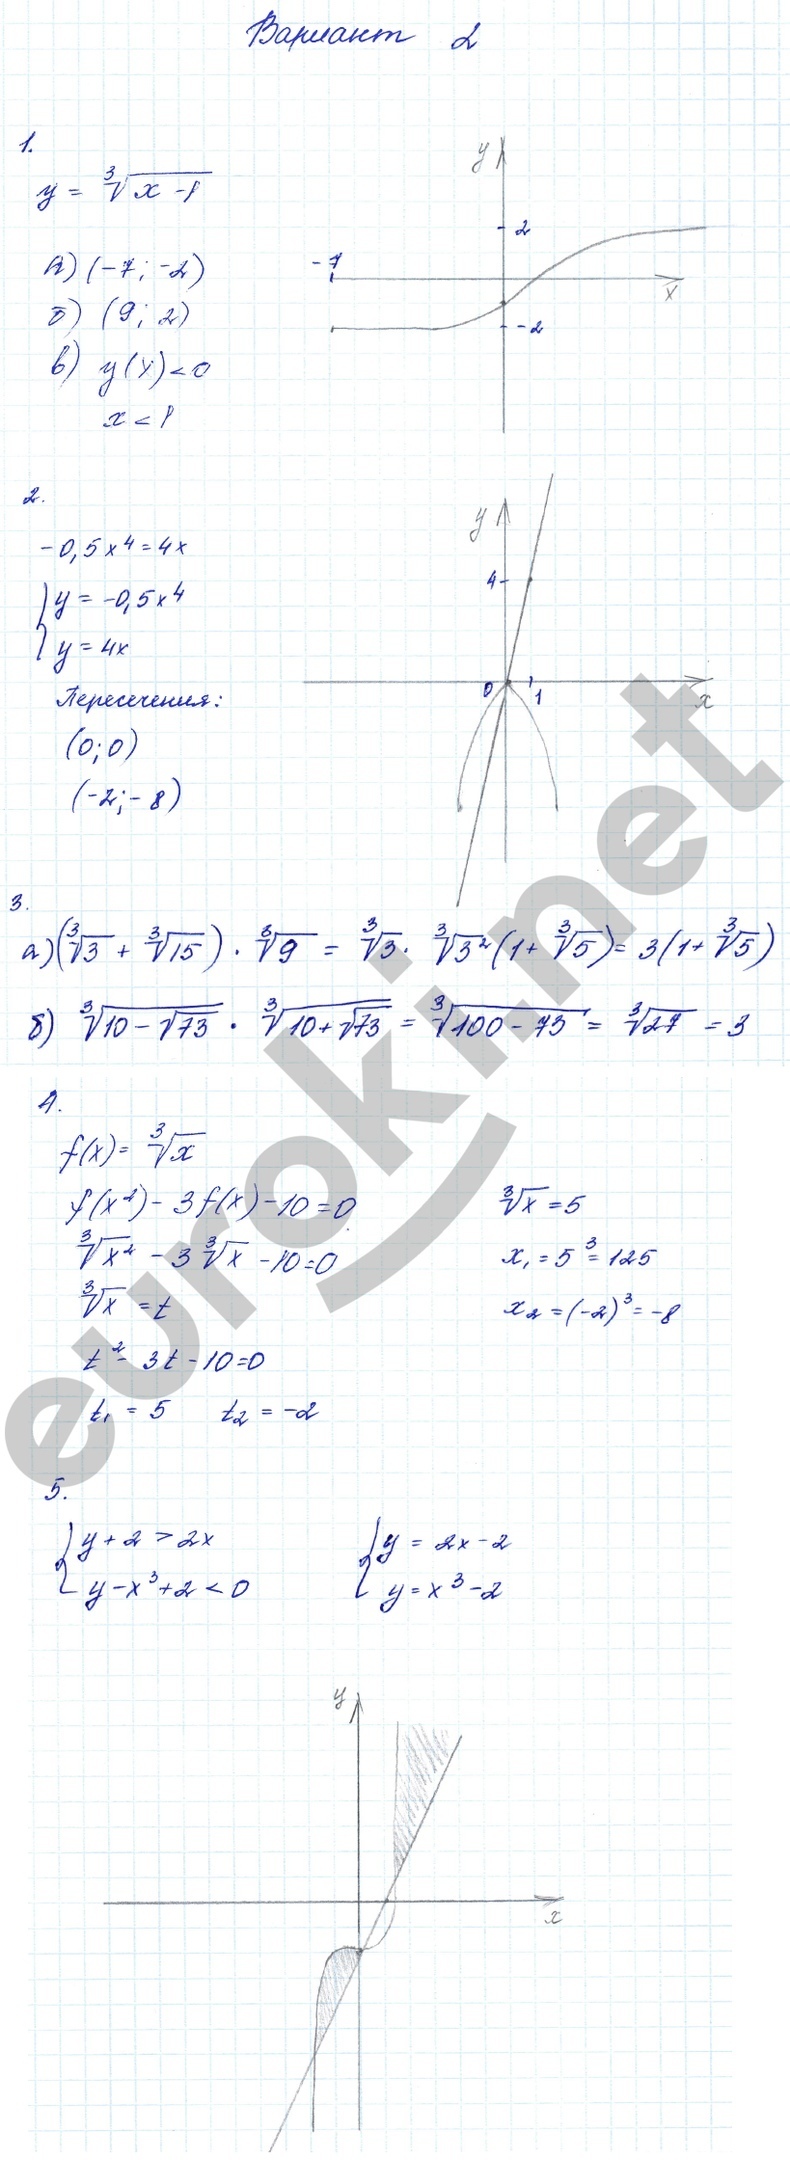 Вариант 2
1.
y = ∛(x - 1)
а) (-7; -2)
б) (9; 2)
в) y(x) < 0
x < 1
y
2
-7
x
-2
2.
-0,5x⁴ = 4x
{ y = -0,5x⁴
{ y = 4x
Пересечения:
(0; 0)
(-2; -8)
y
4
0
1
x
3.
а) (∛3 + ∛15) · ∛9 = ∛3 · ∛3² (1 + ∛5) = 3(1 + ∛5)
б) ∛(10 - √73) · ∛(10 + √73) = ∛(100 - 73) = ∛27 = 3
4.
f(x) = ∛x
f(x²) - 3f(x) - 10 = 0
∛x² - 3∛x - 10 = 0
∛x = t
t² - 3t - 10 = 0
t₁ = 5 t₂ = -2
∛x = 5
x₁ = 5³ = 125
x₂ = (-2)³ = -8
5.
{ y + 2 > 2x
{ y - x³ + 2 < 0
{ y = 2x - 2
{ y = x³ - 2
y
x
euroki.net